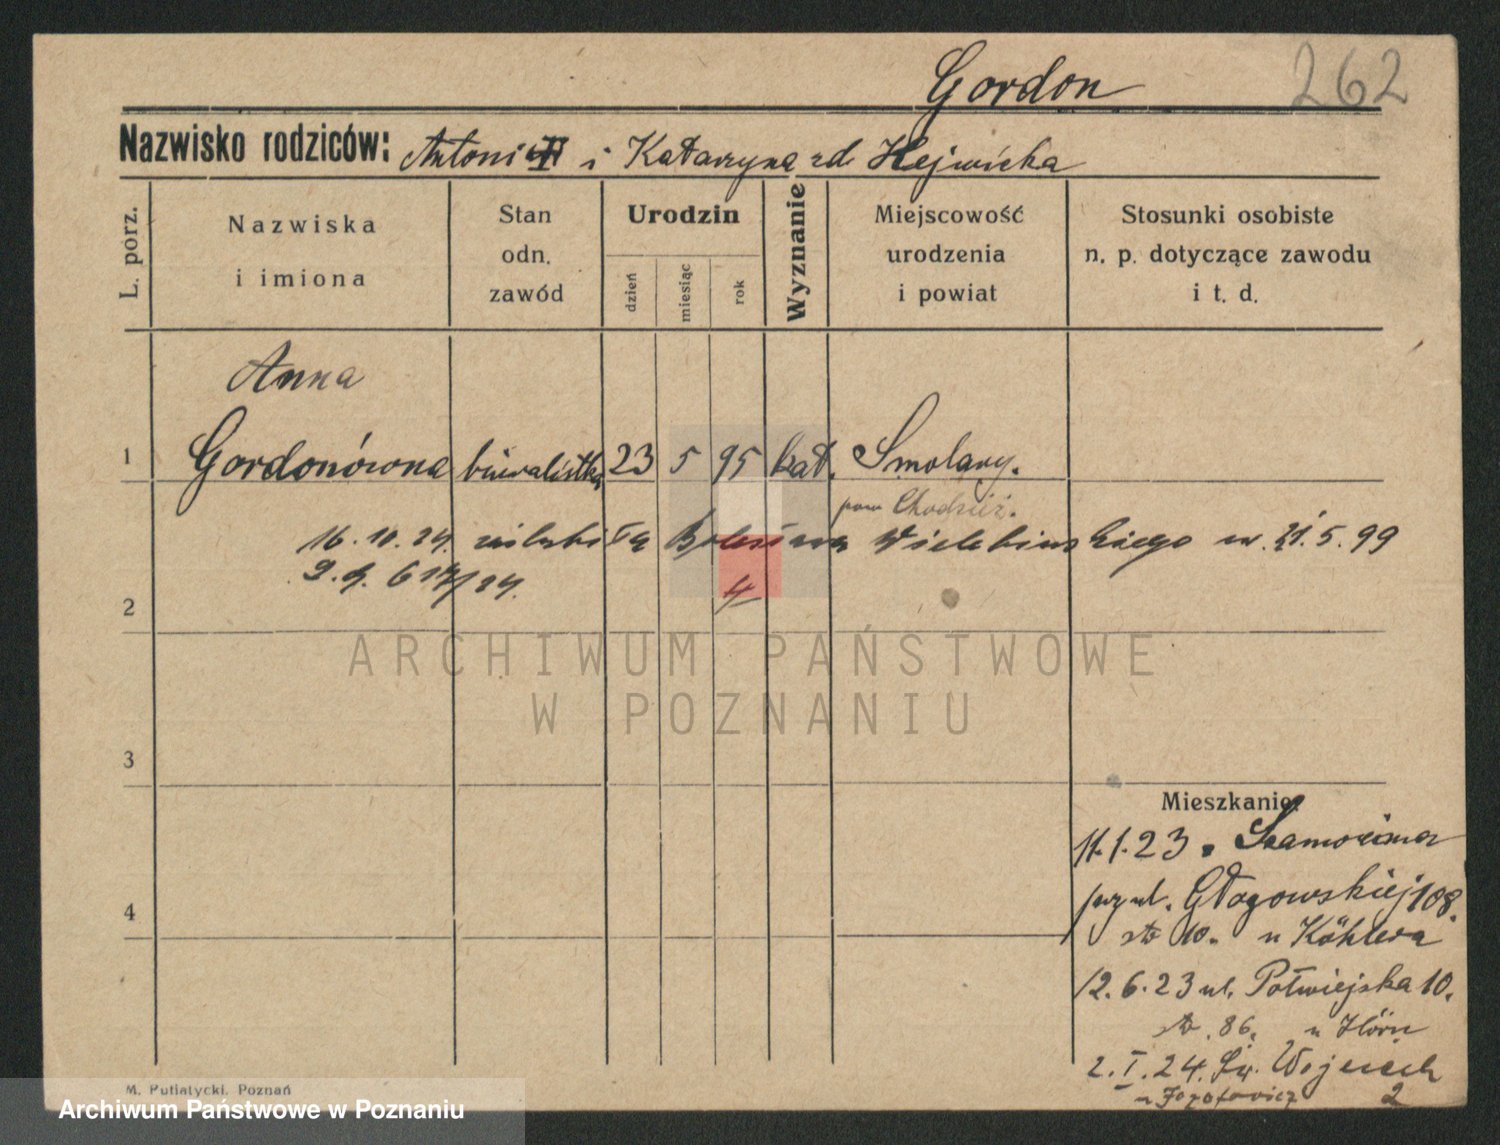 Gordon 262
Nazwisko rodziców: Antoni i Katarzyna zd. Hejwicka
L. porz.
Nazwiska
i imiona
Stan
odn.
zawód
Urodzin
dzień
miesiąc
rok
Wyznanie
Miejscowość
urodzenia
i powiat
Stosunki osobiste
n. p. dotyczące zawodu
i t. d.
Anna
1 Gordonówna biuralistka 23 5 95 kat. Smolary.
pow Chodzież.
16.10.24. zaślubiła Bolesława Wielebinskiego ur. 21.5.99
617/24.
2 4
ARCHIWUM PAŃSTWOWE
W POZNANIU
3
Mieszkanie:
11.1.23. Szamocina
przy ul. Głogowskiej 108.
str 10. u Köhlera
4
12.6.23 ul. Półwiejska 10.
str. 86. u Hörn
2.I.24. Św. Wojciech
u Jozefowicz 2
M. Putiatycki, Poznań
Archiwum Państwowe w Poznaniu